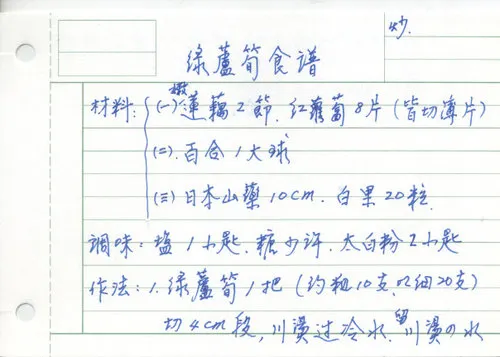 炒.
綠蘆筍食譜
材料: (一) 嫩蓮藕2節. 紅蘿蔔8片 (皆切薄片)
(二). 百合1大球
(三) 日本山藥10cm. 白果20粒.
調味: 塩1小匙. 糖少许. 太白粉2小匙
作法: 1. 綠蘆筍1把 (約粗10支. 细20支)
切4cm段, 川燙过冷水. 留川燙の水